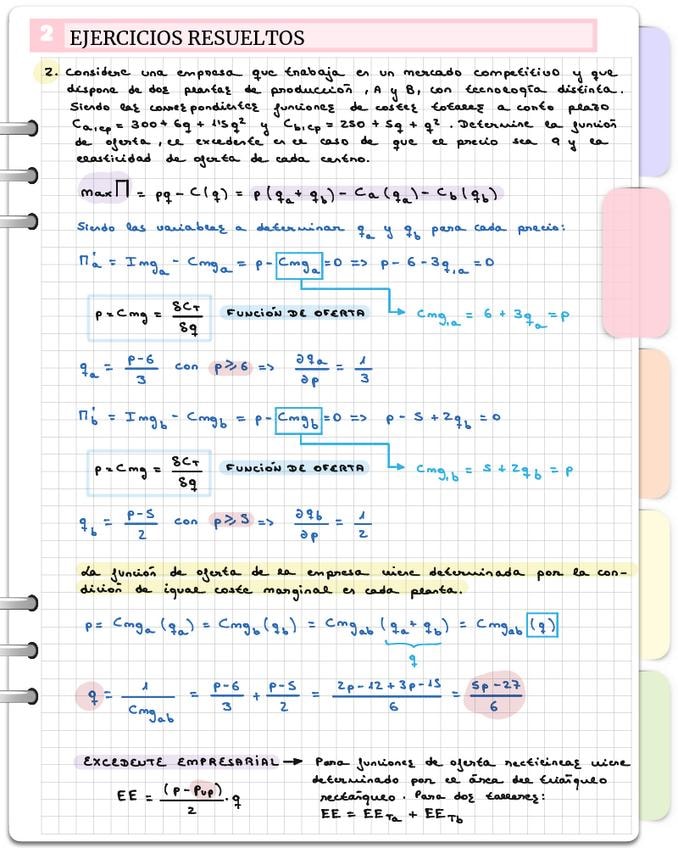 2 EJERCICIOS RESUELTOS
2. Considere una empresa que trabaja en un mercado competitivo y que
dispone de dos plantas de producción, A y B, con tecnología distinta.
Siendo las correspondientes funciones de costes totales a corto plazo
Ca,cp = 300 + 6q + 1'5q² y Cb,cp = 250 + 5q + q². Determine la función
de oferta, el excedente en el caso de que el precio sea 9 y la
elasticidad de oferta de cada centro.
max Π = pq - C(q) = p(qa + qb) - Ca(qa) - Cb(qb)
Siendo las variables a determinar qa y qb para cada precio:
Π'a = Imga - Cmga = p - Cmga = 0 => p - 6 - 3q,a = 0
p = Cmg = δCT/δq FUNCIÓN DE OFERTA Cmg,a = 6 + 3qa = p
qa = p-6/3 con p≥6 => ∂qa/∂p = 1/3
Π'b = Imgb - Cmgb = p - Cmgb = 0 => p - 5 + 2qb = 0
p = Cmg = δCT/δq FUNCIÓN DE OFERTA Cmg,b = 5 + 2qb = p
qb = p-5/2 con p≥5 => ∂qb/∂p = 1/2
La función de oferta de la empresa viene determinada por la con-
dición de igual coste marginal es cada planta.
p = Cmga(qa) = Cmgb(qb) = Cmgab(qa + qb) = Cmgab(q)
q
q = 1/Cmgab = p-6/3 + p-5/2 = 2p-12+3p-15/6 = 5p-27/6
EXCEDENTE EMPRESARIAL → Para funciones de oferta rectilíneas viene
determinado por el área del triángulo
EE = (p - Pup)/2 · q rectángulo. Para dos talleres:
EE = EETa + EETb